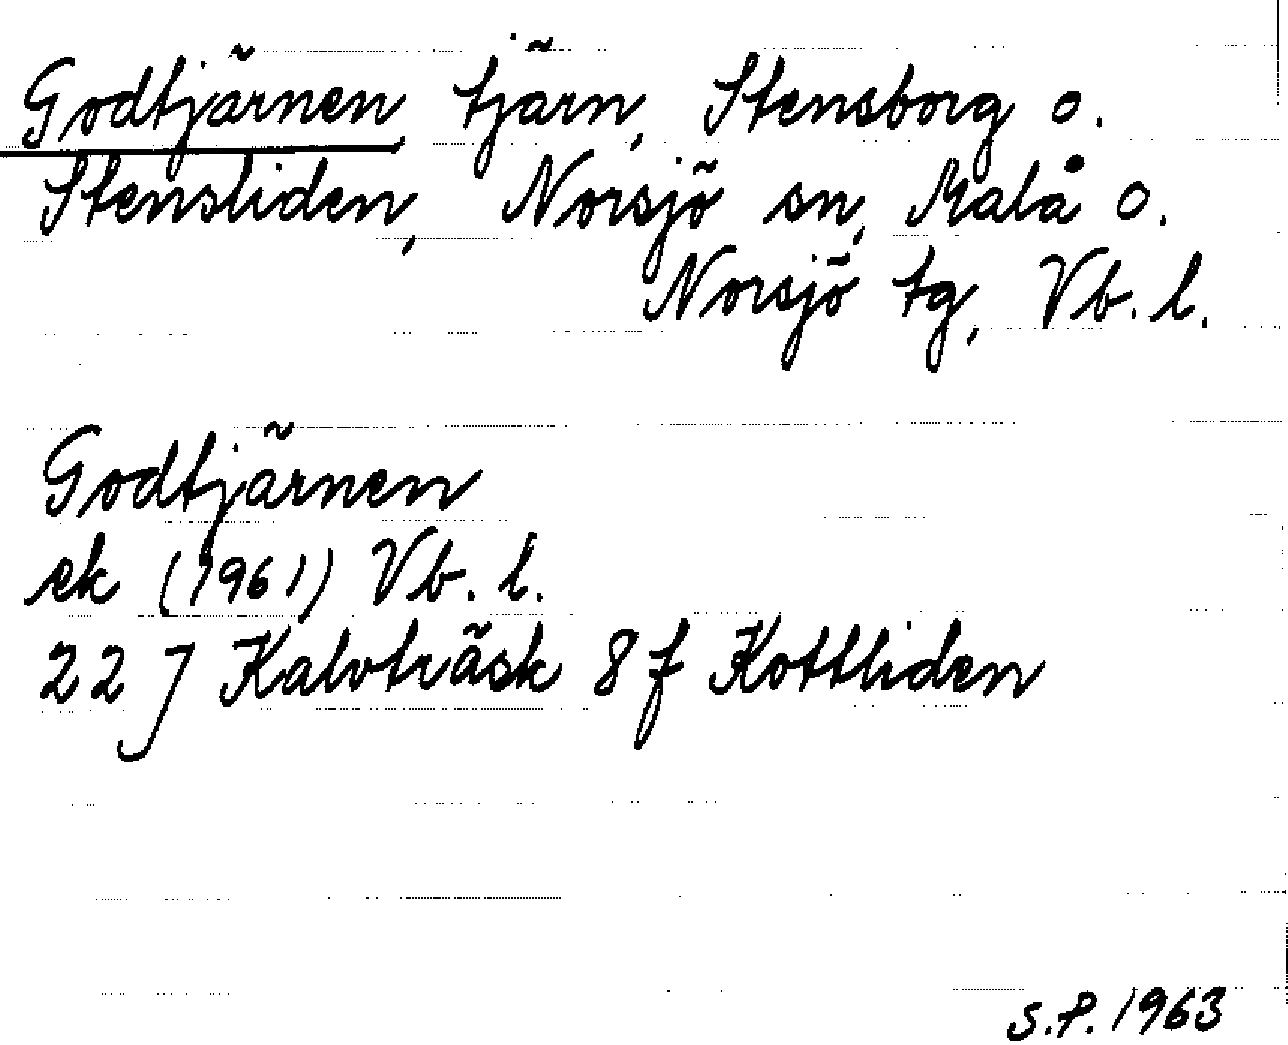 Godtjärnen, tjärn, Stensborg o.
Stensliden, Norsjö sn, Malå o.
Norsjö tg, Vb. l.
Godtjärnen
ek (1961) Vb. l.
22 J Kalvträsk 8 f Kottliden
S.P. 1963